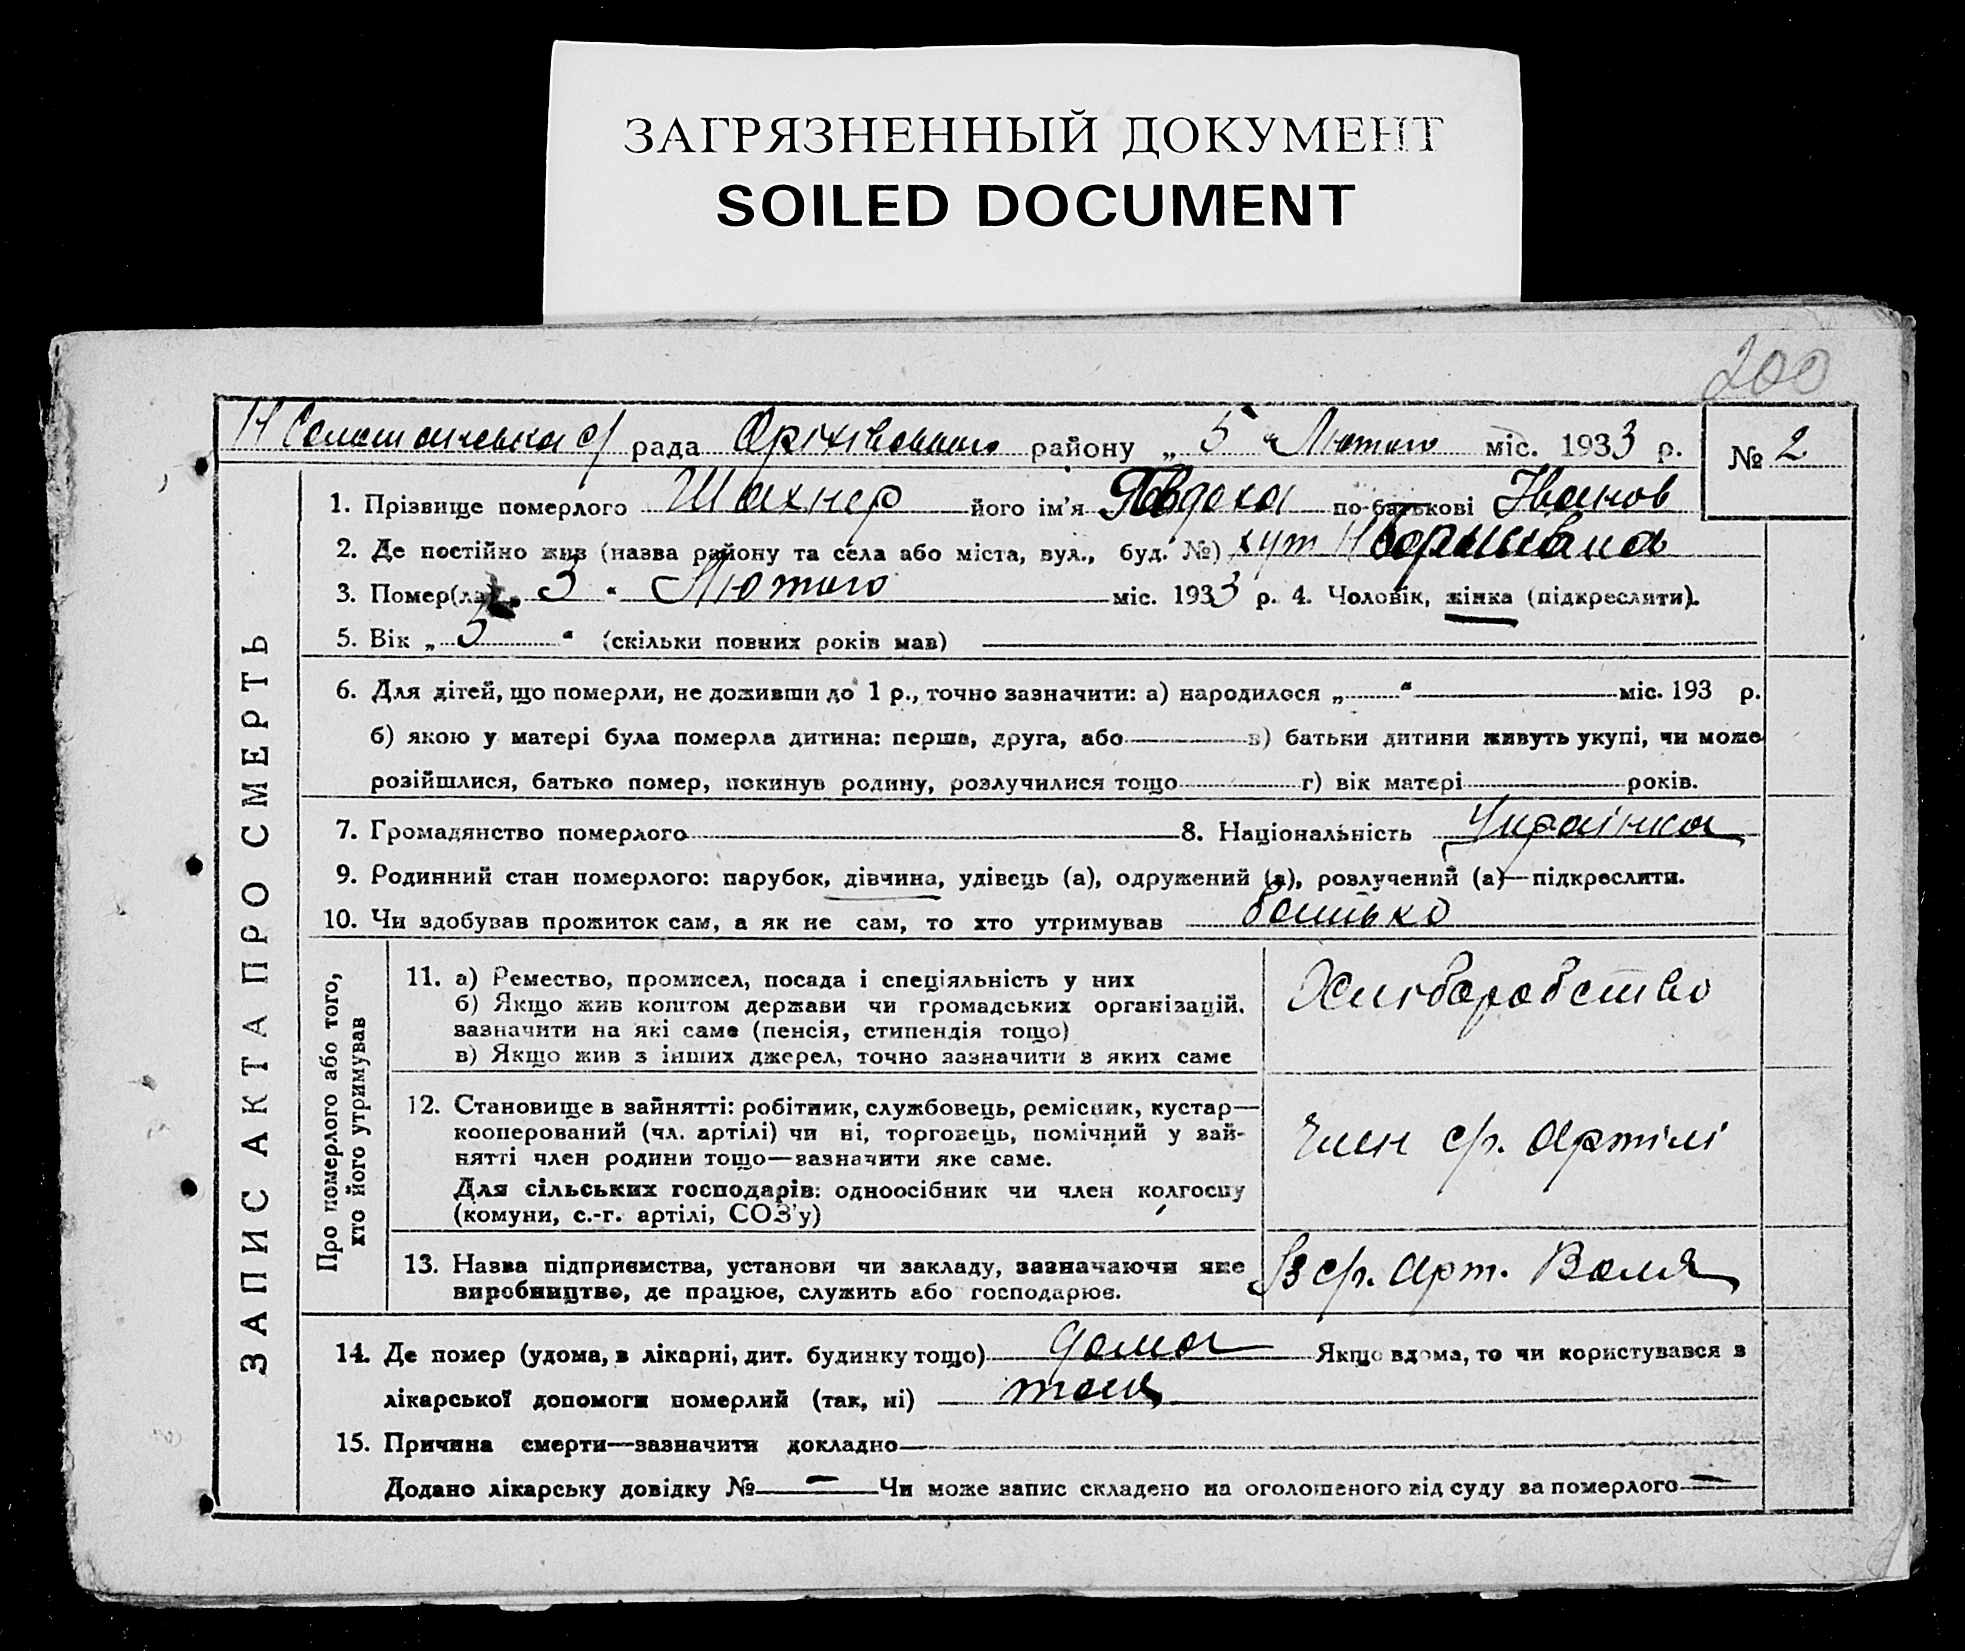 ЗАГРЯЗНЕННЫЙ ДОКУМЕНТ
SOILED DOCUMENT
200
рада Оріхівського району „ 5 “ Лютого міс. 1933 р.
№ 2
ЗАПИС АКТА ПРО СМЕРТЬ
1. Прізвище померлого Шахнер його ім'я Явдоха по-батькові Іванов
2. Де постійно жив (назва району та села або міста, вул., буд. №) хут Н
3. Помер(ла) „ 3 “ Лютого міс. 1933 р. 4. Чоловік, жінка (підкреслити).
5. Вік „ 5 “ (скільки повних років мав)
6. Для дітей, що померли, не доживши до 1 р., точно зазначити: а) народилося „ “ міс. 193 р.
б) якою у матері була померла дитина: перша, друга, або в) батьки дитини живуть укупі, чи може
розійшлися, батько помер, покинув родину, розлучилися тощо г) вік матері років.
7. Громадянство померлого 8. Національність Українка
9. Родинний стан померлого: парубок, дівчина, удівець (а), одружений (а), розлучений (а)—підкреслити.
10. Чи здобував прожиток сам, а як не сам, то хто утримував батько
Про померлого або того,
хто його утримував
11. а) Ремество, промисел, посада і спеціяльність у них
б) Якщо жив коштом держави чи громадських організацій,
зазначити на які саме (пенсія, стипендія тощо)
в) Якщо жив з інших джерел, точно зазначити з яких саме
Хліборобство
12. Становище в зайнятті: робітник, службовець, ремісник, кустар—
кооперований (чл. артілі) чи ні, торговець, помічний у зай-
нятті член родини тощо—зазначити яке саме.
Для сільських господарів: одноосібник чи член колгоспу
(комуни, с.-г. артілі, СОЗ'у)
Член с/г. Артілі
13. Назва підприємства, установи чи закладу, зазначаючи яке
виробництво, де працює, служить або господарює.
В с/г. Арт. Воля
14. Де помер (удома, в лікарні, дит. будинку тощо) дома Якщо вдома, то чи користувався з
лікарської допомоги померлий (так, ні)
15. Причина смерти—зазначити докладно
Додано лікарську довідку № — Чи може запис складено на оголошеного від суду за померлого —